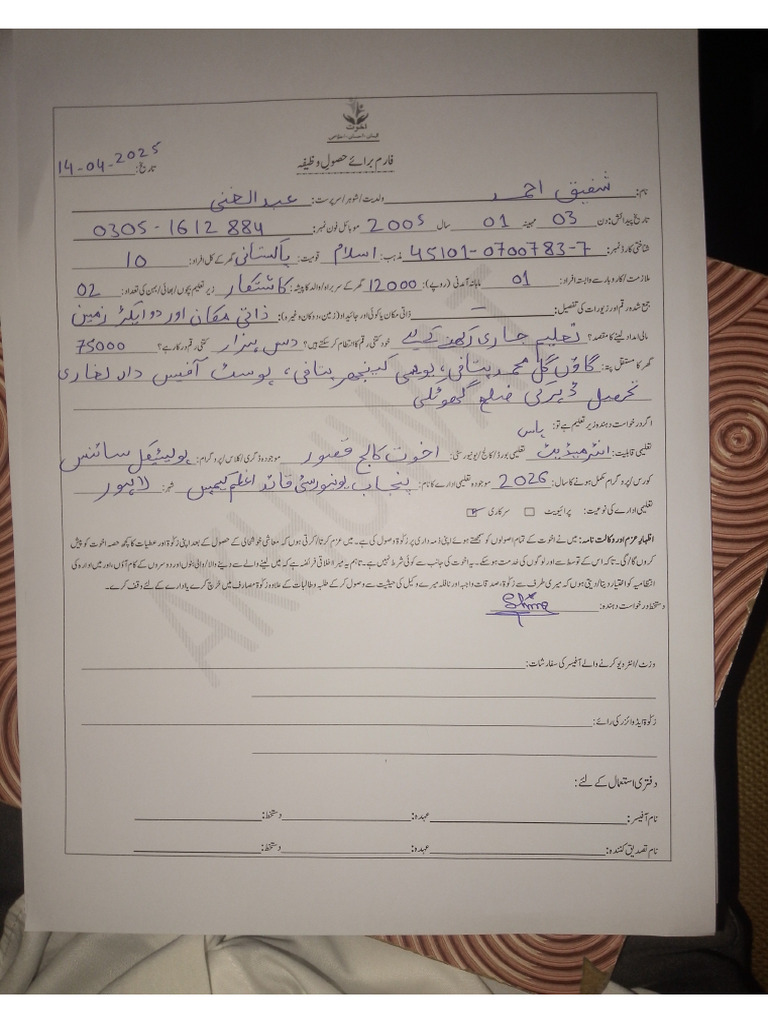 اخوت
فارم برائے حصول وظیفہ
تاریخ: 14-04-2025
نام: شفیق احمد ولدیت/شوہر/سرپرست: عبدالغنی
تاریخ پیدائش: دن 03 مہینہ 01 سال 2005 موبائل فون نمبر: 0305-1612884
شناختی کارڈ نمبر: 45101-0700783-7 مذہب: اسلام قومیت: پاکستانی گھر کے کل افراد: 10
ملازمت/کاروبار سے وابستہ افراد: 01 ماہانہ آمدنی (روپے): 12000 گھر کے سربراہ/والد کا پیشہ: کاشتکار زیر تعلیم بچوں/بھائی/بہن کی تعداد: 02
جمع شدہ رقم اور زیورات کی تفصیل: - ذاتی مکان یا کوئی اور جائیداد (زمین، دوکان وغیرہ): ذاتی مکان اور دو ایکڑ زمین
مالی امداد لینے کا مقصد؟ تعلیم جاری رکھنے کیلئے خود کتنی رقم کا انتظام کر سکتے ہیں؟ دس ہزار کتنی رقم درکار ہے؟ 75000
گھر کا مستقل پتہ: گاؤں گل محمد پتافی، پوسٹ آفیس داد لغاری
تحصیل ڈہرکی ضلع گھوٹکی
اگر درخواست دہندہ زیر تعلیم ہے تو:
تعلیمی قابلیت: انٹرمیڈیٹ پاس تعلیمی بورڈ/کالج/یونیورسٹی: اخوت کالج قصور موجودہ ڈگری/کلاس/پروگرام: پولیٹیکل سائنس
کورس/پروگرام مکمل ہونے کا سال: 2026 موجودہ تعلیمی ادارے کا نام: پنجاب یونیورسٹی قائد اعظم کیمپس شہر: لاہور
تعلیمی ادارے کی نوعیت: پرائیویٹ سرکاری
اظہار عزم اور وکالت نامہ: میں نے اخوت کے تمام اصولوں کو سمجھتے ہوئے اپنی ذمہ داری پر زکوٰۃ وصول کی ہے۔ میں عزم کرتا/کرتی ہوں کہ معاشی خوشحالی کے حصول کے بعد اپنی زکوٰۃ اور عطیات کا کچھ حصہ اخوت کو پیش
کروں گا/گی۔ تاکہ اس کے توسط سے اور لوگوں کی خدمت ہو سکے۔ یہ اخوت کی جانب سے کوئی شرط نہیں ہے۔ تاہم یہ میرا اخلاقی فرض ہے کہ میں لینے والے سے دینے والا/والی بنوں اور دوسروں کے کام آؤں، اور میں ادارہ کی
انتظامیہ کو اختیار دیتا/دیتی ہوں کہ میری طرف سے زکوٰۃ، صدقات واجبہ اور نافلہ میرے وکیل کی حیثیت سے وصول کر کے طلبہ و طالبات کے علاوہ زکوٰۃ مصارف میں خرچ کرے یا ادارے کے لئے وقف کرے۔
دستخط درخواست دہندہ:
وزٹ/انٹرویو کرنے والے آفیسر کی سفارشات:
زکوٰۃ ایڈوائزر کی رائے:
دفتری استعمال کے لئے:
نام آفیسر: عہدہ: دستخط:
نام تصدیق کنندہ: عہدہ: دستخط:
AKHUWAT